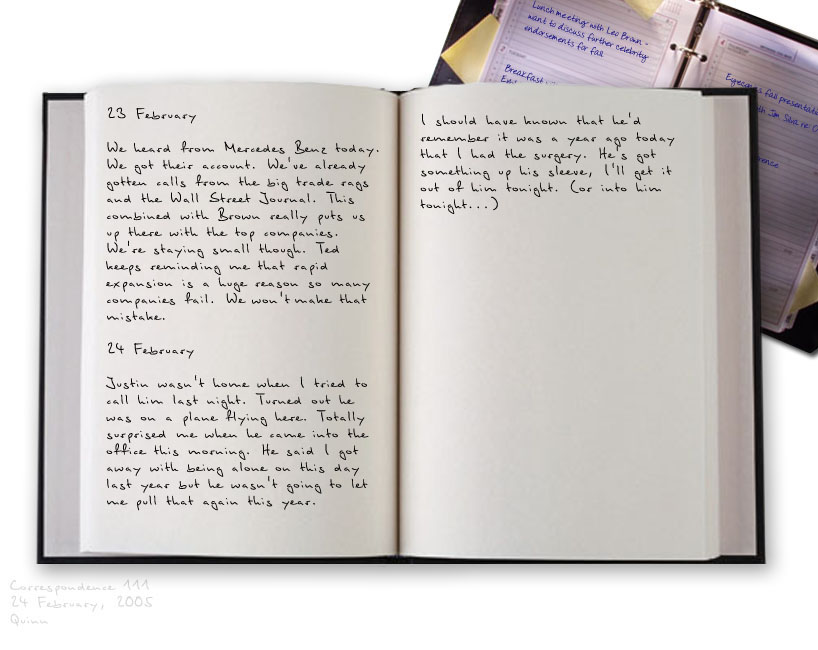 23 February
We heard from Mercedes Benz today.
We got their account. We've already
gotten calls from the big trade rags
and the Wall Street Journal. This
combined with Brown really puts us
up there with the top companies.
We're staying small though. Ted
keeps reminding me that rapid
expansion is a huge reason so many
companies fail. We won't make that
mistake.
24 February
Justin wasn't home when I tried to
call him last night. Turned out he
was on a plane flying here. Totally
surprised me when he came into the
office this morning. He said I got
away with being alone on this day
last year but he wasn't going to let
me pull that again this year.
I should have known that he'd
remember it was a year ago today
that I had the surgery. He's got
something up his sleeve, I'll get it
out of him tonight. (or into him
tonight...)
Lunch meeting with Leo Brown -
want to discuss further celebrity
endorsements for fall
Breakfast
fall
Jim Silva re
Correspondence 111
24 February, 2005
Quinn